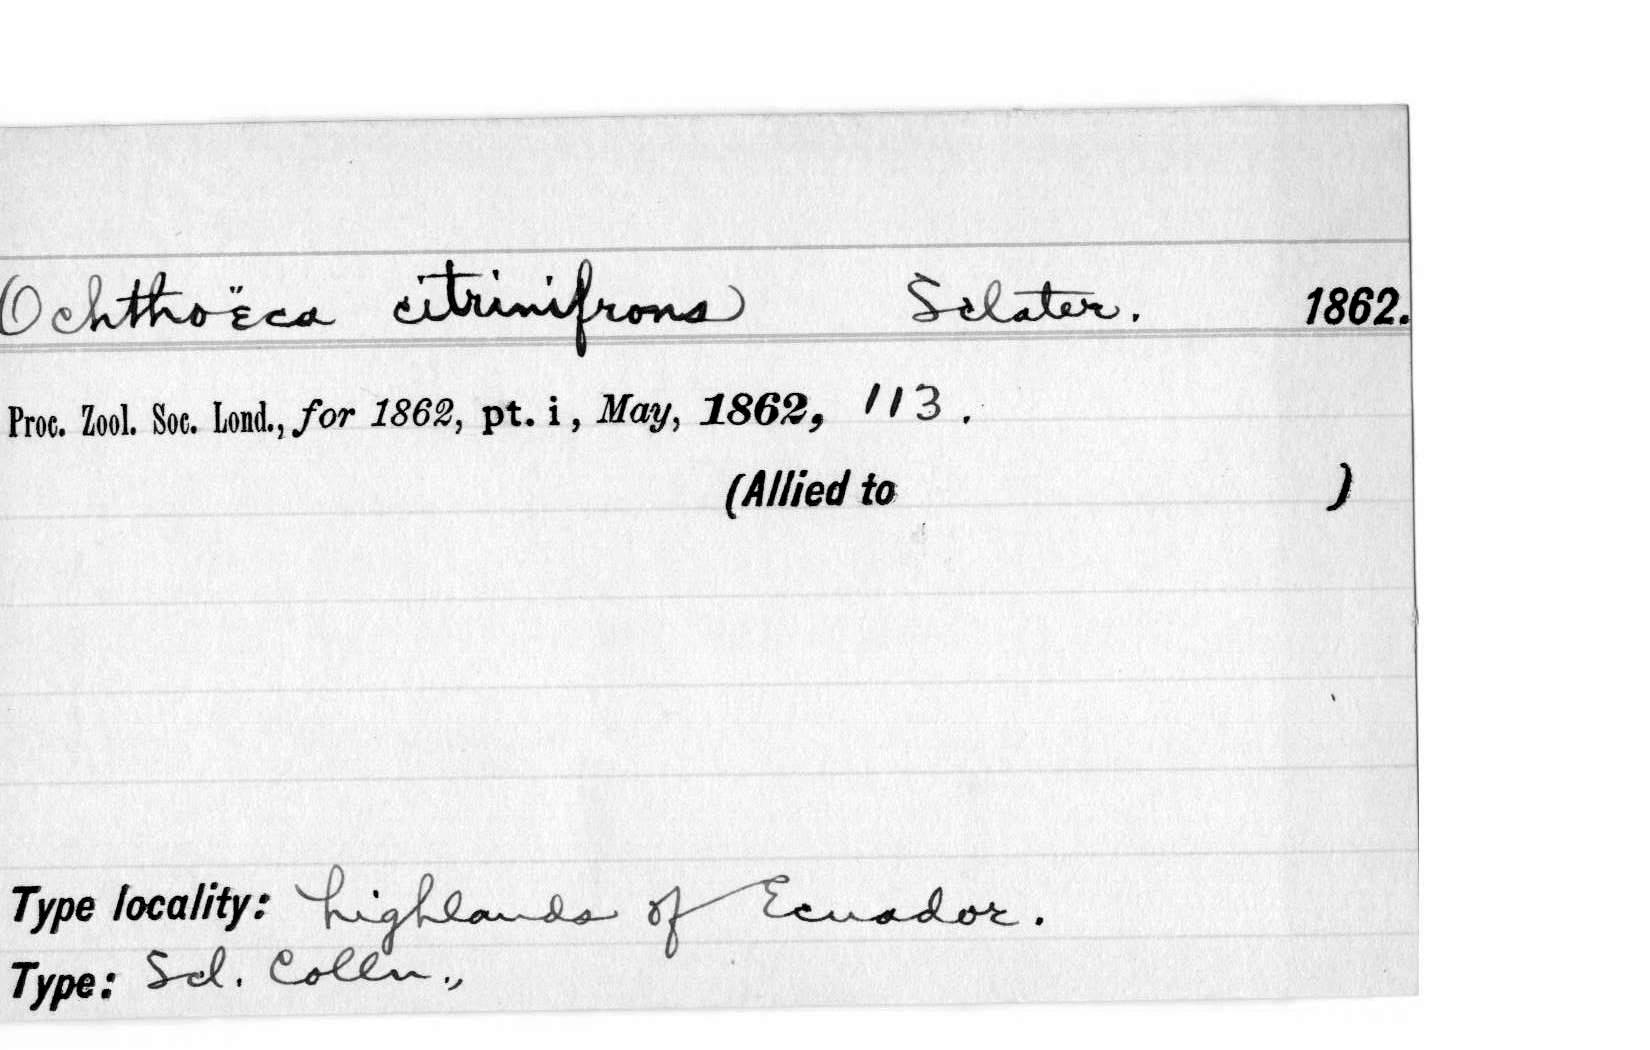 Ochthoëca citrinifrons Sclater. 1862.
Proc. Zool. Soc. Lond., for 1862, pt. i, May, 1862, 113.
(Allied to )
Type locality: highlands of Ecuador.
Type: Scl. Colln.,